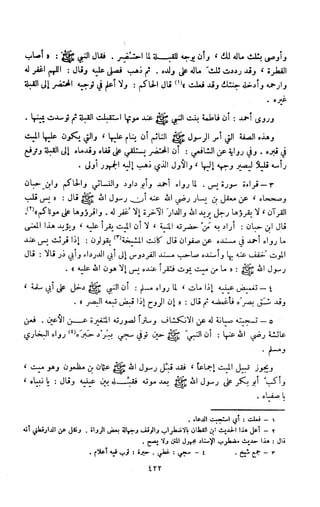 وأوصى بثلث ماله لك ، وأن يوجه للقبلة لما احتضر . فقال النبي ﷺ : « أصاب
الفطرة ، وقد رددت ثلث ماله على ولده . ثم ذهب فصلى عليه وقال : اللهم اغفر له
وارحمه وأدخله جنتك وقد فعلت »(١) قال الحاكم : ولا أعلم في توجيه المحتضر إلى القبلة
غيره .
وروى أحمد : أن فاطمة بنت النبي ﷺ عند موتها استقبلت القبلة ثم توسدت يمينها .
وهذه الصفة التي أمر الرسول ﷺ النائم أن ينام عليها ، والتي يكون عليها الميت
في قبره . وفي رواية عن الشافعي : أن المحتضر يستلقي على قفاه وقدماه إلى القبلة وترفع
رأسه قليلا ليصير وجهه إليها ، والأول الذي ذهب إليه الجمهور أولى .
٣ – قراءة سورة يس . لما رواه أحمد وأبو داود والنسائي والحاكم وابن حبان
وصححاه ، عن معقل بن يسار رضي الله عنه أن رسول الله ﷺ قال : « يس قلب
القرآن ، لا يقرؤها رجل يريد الله والدار الآخرة إلا غفر له . واقرؤوها على موتاكم »(٢)
قال ابن حبان : أراد به من حضرته المنية ، لا أن الميت يقرأ عليه ، ويؤيد هذا المعنى
ما رواه أحمد في مسنده عن صفوان قال : كانت المشيخة(٣) يقولون : إذا قرئت يس عند
الموت خفف عنه بها ، وأسنده صاحب مسند الفردوس إلى أبي الدرداء وأبي ذر قالا : قال
رسول الله ﷺ : « ما من ميت يموت فتقرأ عنده يس إلا هون الله عليه » .
٤ – تغميض عينيه إذا مات ، لما رواه مسلم : أن النبي ﷺ دخل على أبي سلمة ،
وقد شق بصره فأغمضه ثم قال : « إن الروح إذا قبض تبعه البصر » .
٥ – تسجيته صيانة له عن الانكشاف وسترا لصورته المتغيرة عن الأعين . فعن
عائشة رضي الله عنها : أن النبي ﷺ حين توفي سجي ببرد حبرة(٤) رواه البخاري
ومسلم .
ويجوز تقبيل الميت إجماعا ، فقد قبل رسول الله ﷺ عثمان بن مظعون وهو ميت ،
وأكب أبو بكر على رسول الله ﷺ بعد موته فقبله بين عينيه وقال : يا نبياه ،
يا صفياه .
١ – فعلت : أي استجبت الدعاء .
٢ – أعل هذا الحديث ابن القطان بالاضطراب والوقف وجهالة بعض الرواة . ونقل عن الدارقطني أنه
قال : هذا حديث مضطرب الإسناد مجهول المتن ولا يصح .
٣ – جمع شيخ . ٤ – سجي : غطي . حبرة : ثوب فيه أعلام .
٤٢٢